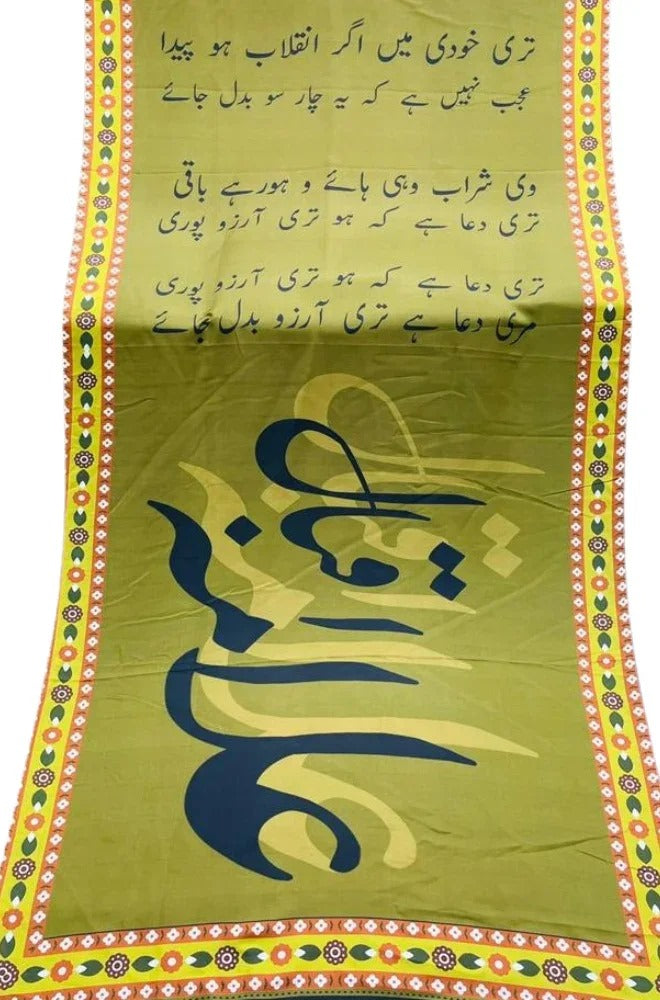 تری خودی میں اگر انقلاب ہو پیدا
عجب نہیں ہے کہ یہ چار سو بدل جائے
وی شراب وہی ہائے و ہورہے باقی
تری دعا ہے کہ ہو تری آرزو پوری
تری دعا ہے کہ ہو تری آرزو پوری
مری دعا ہے تری آرزو بدل جائے
علامہ اقبال